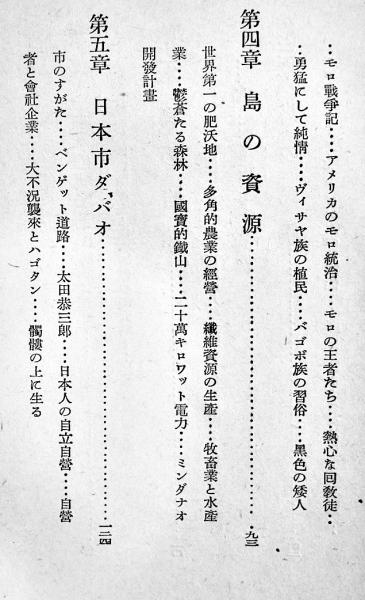 ‥モロ戰爭記‥‥アメリカのモロ統治‥‥モロの王者たち‥‥熱心な回敎徒‥
‥勇猛にして純情‥‥ヴィサヤ族の植民‥‥バゴボ族の習俗‥‥黑色の矮人
第四章 島の資源‥‥‥‥‥‥‥‥‥‥‥‥九三
世界第一の肥沃地‥‥多角的農業の經營‥‥纖維資源の生産‥‥牧畜業と水産
業‥‥鬱蒼たる森林‥‥國寶的鐵山‥‥二十萬キロワット電力‥‥ミンダナオ
開發計畫
第五章 日本市ダバオ‥‥‥‥‥‥‥‥‥‥‥‥一二四
市のすがた‥‥ベンゲット道路‥‥太田恭三郎‥‥日本人の自立自營‥‥自營
者と會社企業‥‥大不況襲來とハゴタン‥‥髑髏の上に生る